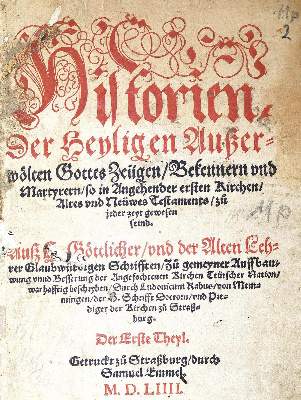 Historien.
Der Heyligen Außer-
wölten Gottes Zeügen/Bekennern vnd
Martyrern/so in Angehender ersten Kirchen/
Altes vnd Neüwes Testaments/zů
jeder zeyt gewesen
seind.
Auß H. Göttlicher/vnd der Alten Leh-
rer Glaubwürdigen Schrifften/Zů gemeyner Auffbau-
wung vnnd Besserung der Angefochtenen Kirchen Teütscher Nation/
warhafftig beschryben/Durch Ludouicum Rabus/von Mem-
mingen/der H. Schrifft Doctorn/vnd Pre-
diger der Kirchen zů Straß-
burg.
Der Erste Theyl.
Getruckt zů Straßburg/durch
Samuel Emmel
M. D. LIIII.